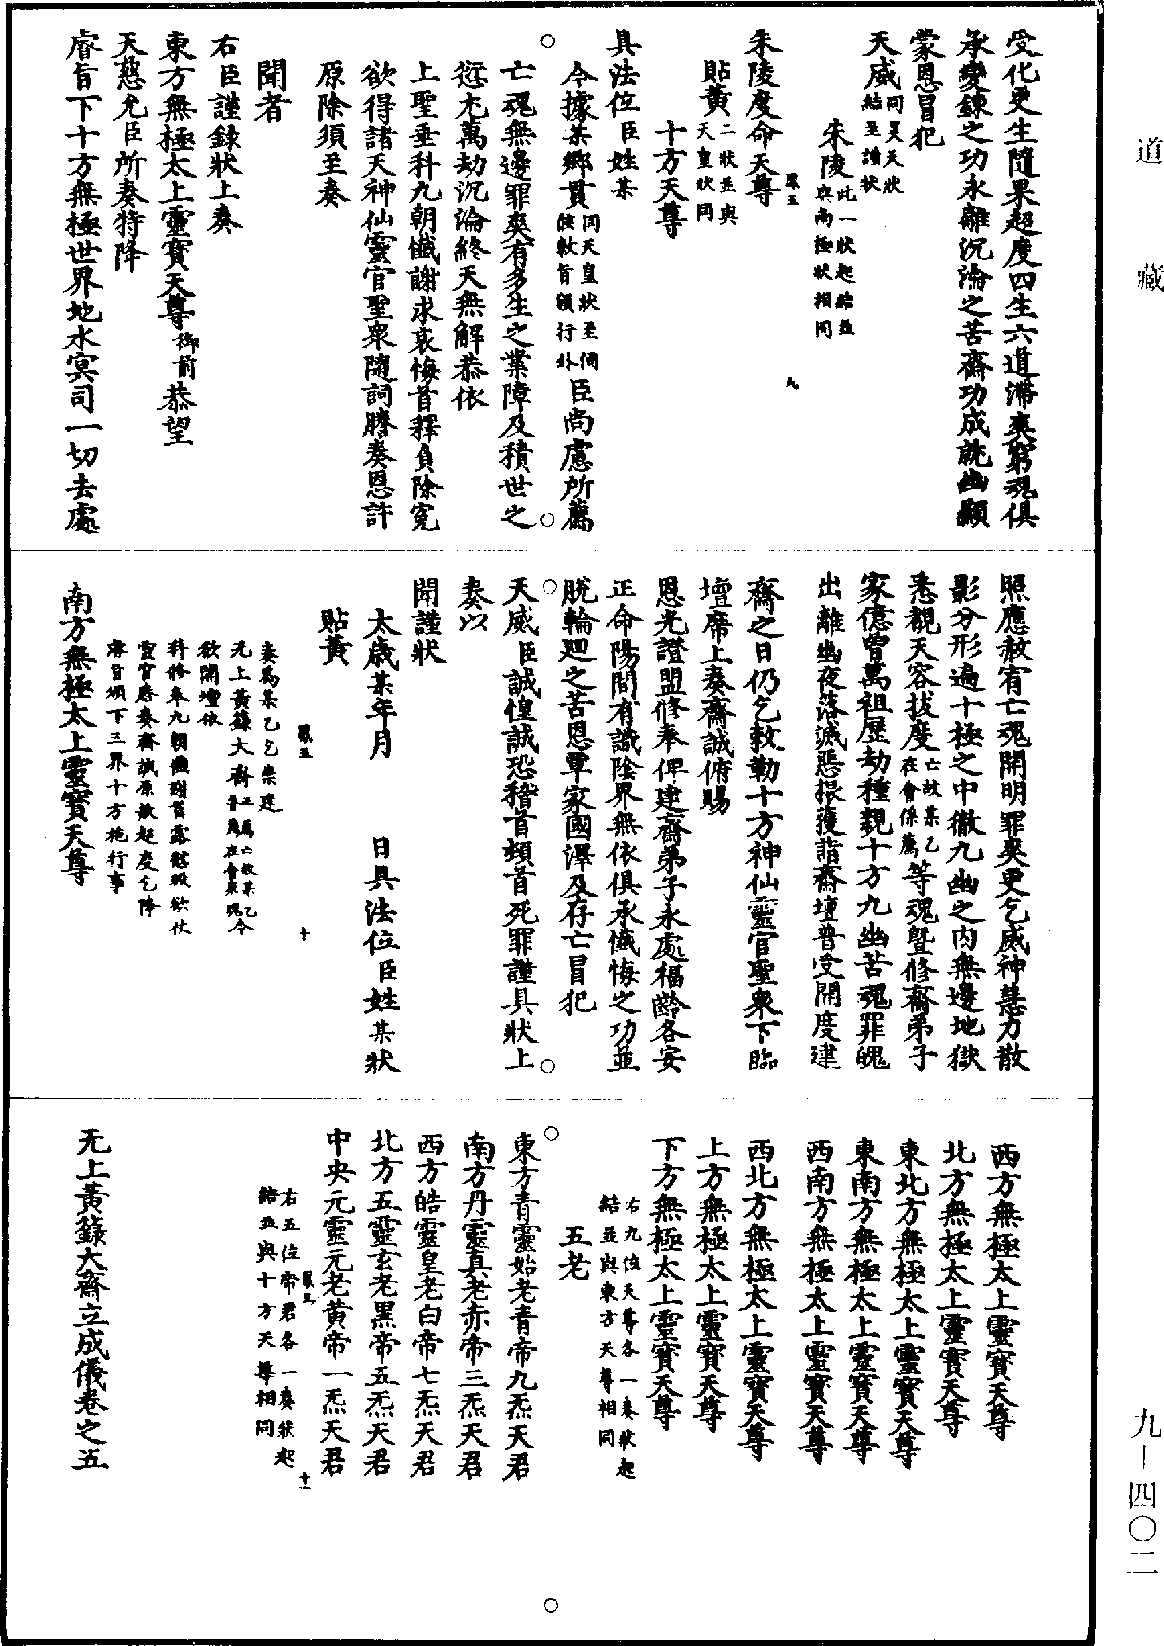 受化更生隨果超度四生六道滯爽窮魂俱
承變鍊之功永離沉淪之苦齋功成就幽顯
蒙恩冒犯
天威同昊天狀結至謹狀
朱陵此一狀起結並與南極狀相同
九
朱陵度命天尊
貼黃二狀並與天皇狀同
十方天尊
具法位臣姓某
今據某鄉貫同天皇狀至備依敕旨頒行外臣尚慮所薦
亡魂無邊罪爽有多生之業障及積世之
愆尤萬劫沉淪終天無解恭依
上聖垂科九朝懺謝求哀悔首釋負除冤
欲得諸天神仙靈官聖衆隨詞騰奏恩許
原除須至奏
聞者
右臣謹錄狀上奏
東方無極太上靈寶天尊御前恭望
天慈允臣所奏特降
睿旨下十方無極世界地水冥司一切去處
照應赦宥亡魂開明罪爽更乞威神慧力散
影分形遍十極之中徹九幽之內無邊地獄
悉覩天容拔度亡故某乙在會係薦等魂曁修齋弟子
家億曾萬祖歷劫種親十方九幽苦魂罪魄
出離幽夜落滅惡根獲詣齋壇普受開度建
齋之日仍乞敕勒十方神仙靈官聖衆下臨
壇席上奏齋誠俯賜
恩光證盟修奉俾建齋弟子永處福齡各安
正命陽間有識陰界無依俱承懺悔之功並
脫輪迴之苦恩覃家國澤及存亡冒犯
天威臣誠惶誠恐稽首頓首死罪謹具狀上
奏以
聞謹狀
太歲某年月　日具法位臣姓某狀
貼黃
奏爲某乙乞崇建
无上黃籙大齋正薦亡故某乙普薦在會衆魂今
欲開壇依
科修奉九朝懺謝首露愆瑕欲仗
靈官應奏齋誠原赦起度乞降
睿旨頒下三界十方施行事
十
南方無極太上靈寶天尊
西方無極太上靈寶天尊
北方無極太上靈寶天尊
東北方無極太上靈寶天尊
東南方無極太上靈寶天尊
西南方無極太上靈寶天尊
西北方無極太上靈寶天尊
上方無極太上靈寶天尊
下方無極太上靈寶天尊
右九位天尊各一奏狀起
結並與東方天尊相同
五老
東方青靈始老青帝九炁天君
南方丹靈真老赤帝三炁天君
西方皓靈皇老白帝七炁天君
北方五靈玄老黑帝五炁天君
中央元靈元老黃帝一炁天君
右五位帝君各一奏狀起
結並與十方天尊相同
十一
无上黃籙大齋立成儀卷之五
道藏
九—四〇二